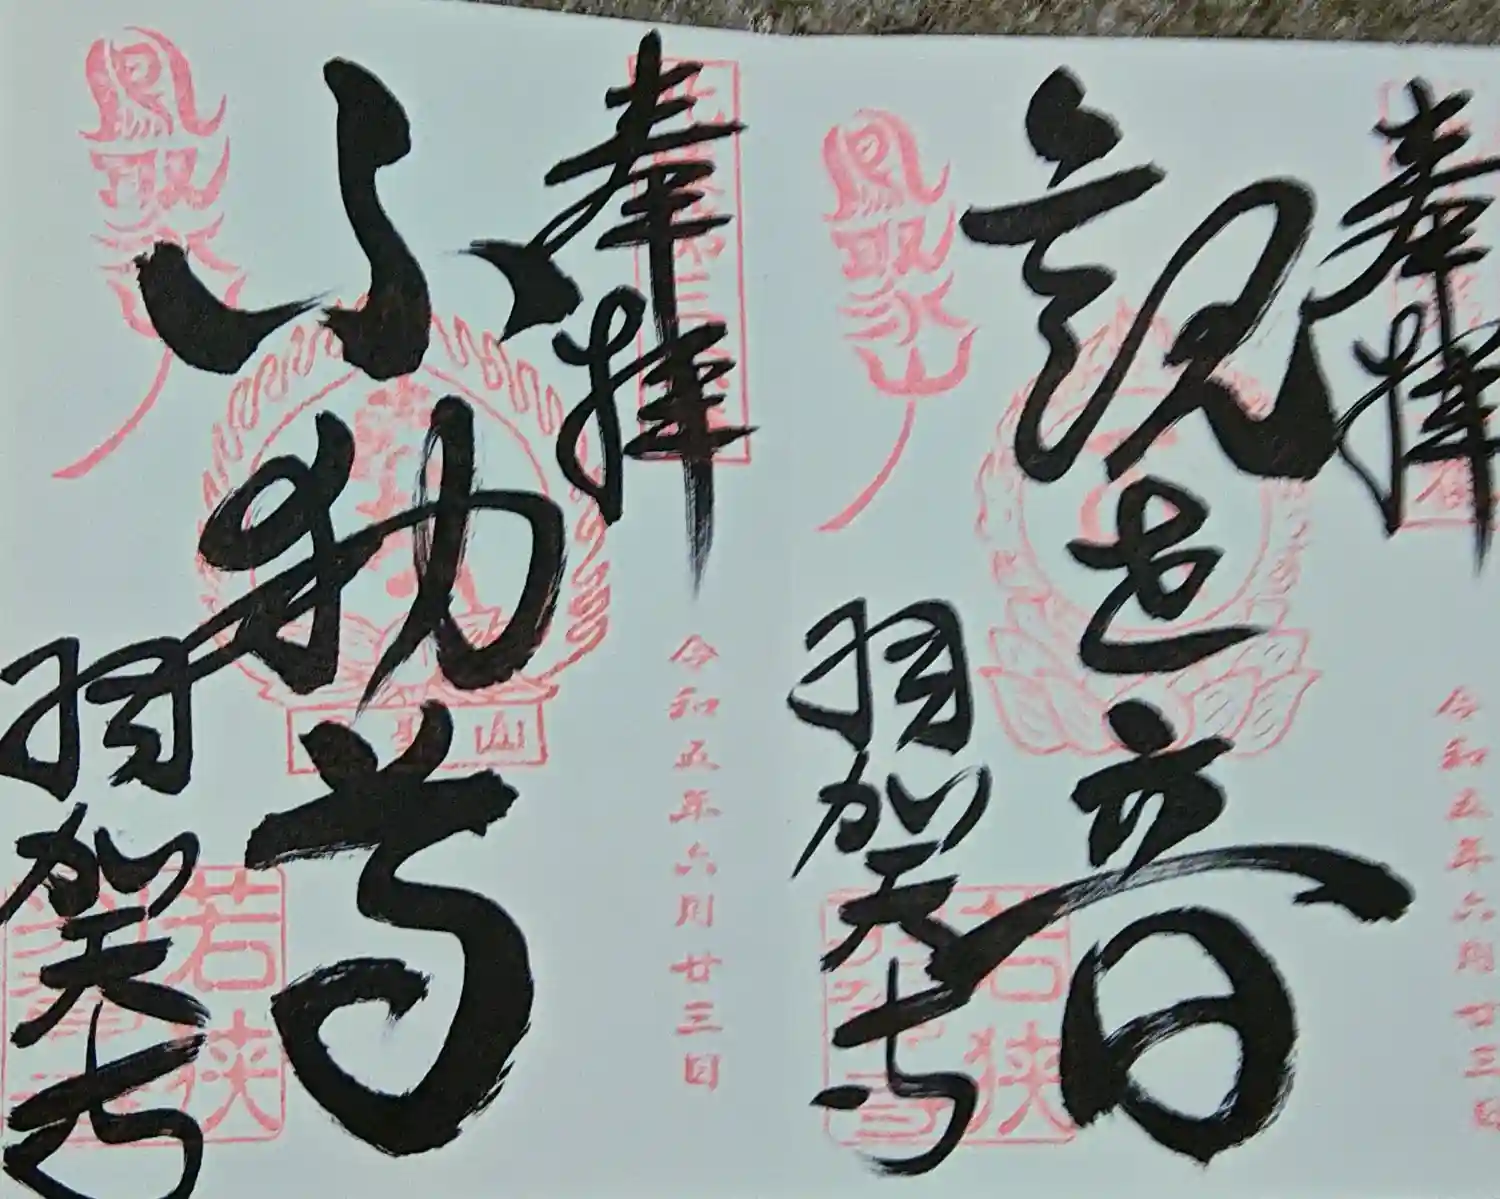 奉拝
令和五年六月廿三日
観世音
羽賀寺
鳳聚山
若狭
奉拝
令和五年六月廿三日
不動尊
羽賀寺
鳳聚山
若狭